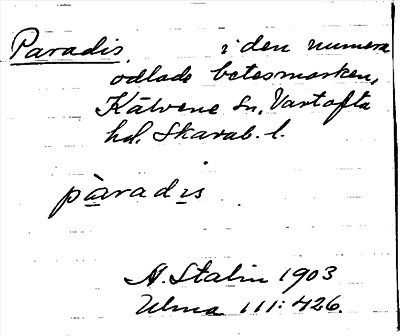 Paradis. i den numera
odlade betesmarken,
Kälvene sn, Vartofta
hd. Skarab. l.
pàradis
A. Stalin 1903
Ulma 111:426.